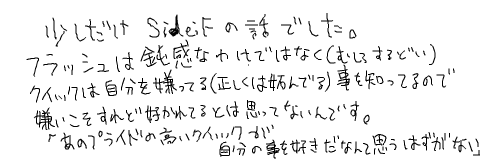 少しだけSide:Fの話でした。
フラッシュは鈍感なわけではなく(むしろするどい)
クイックは自分を嫌ってる(正しくは妬んでる)事を知ってるので
嫌いこそすれど好かれてるとは思ってないんです。
「あのプライドの高いクイックが
自分の事を好きだなんて思うはずがない」